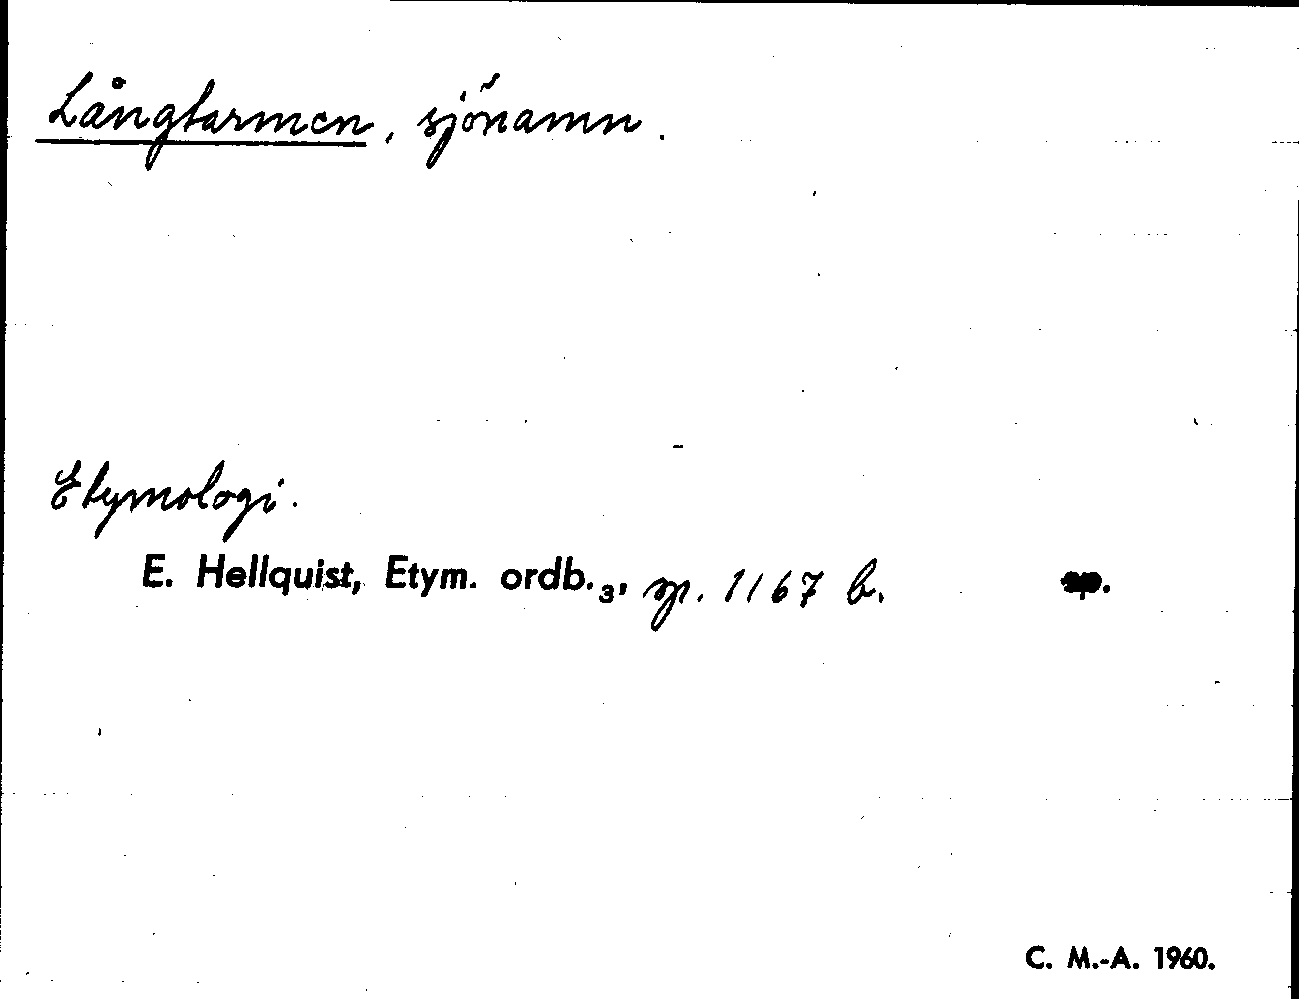 Långtarmen, sjönamn.
Etymologi.
E. Hellquist, Etym. ordb.₃, sp. 1167 b. sp.
C. M.-A. 1960.